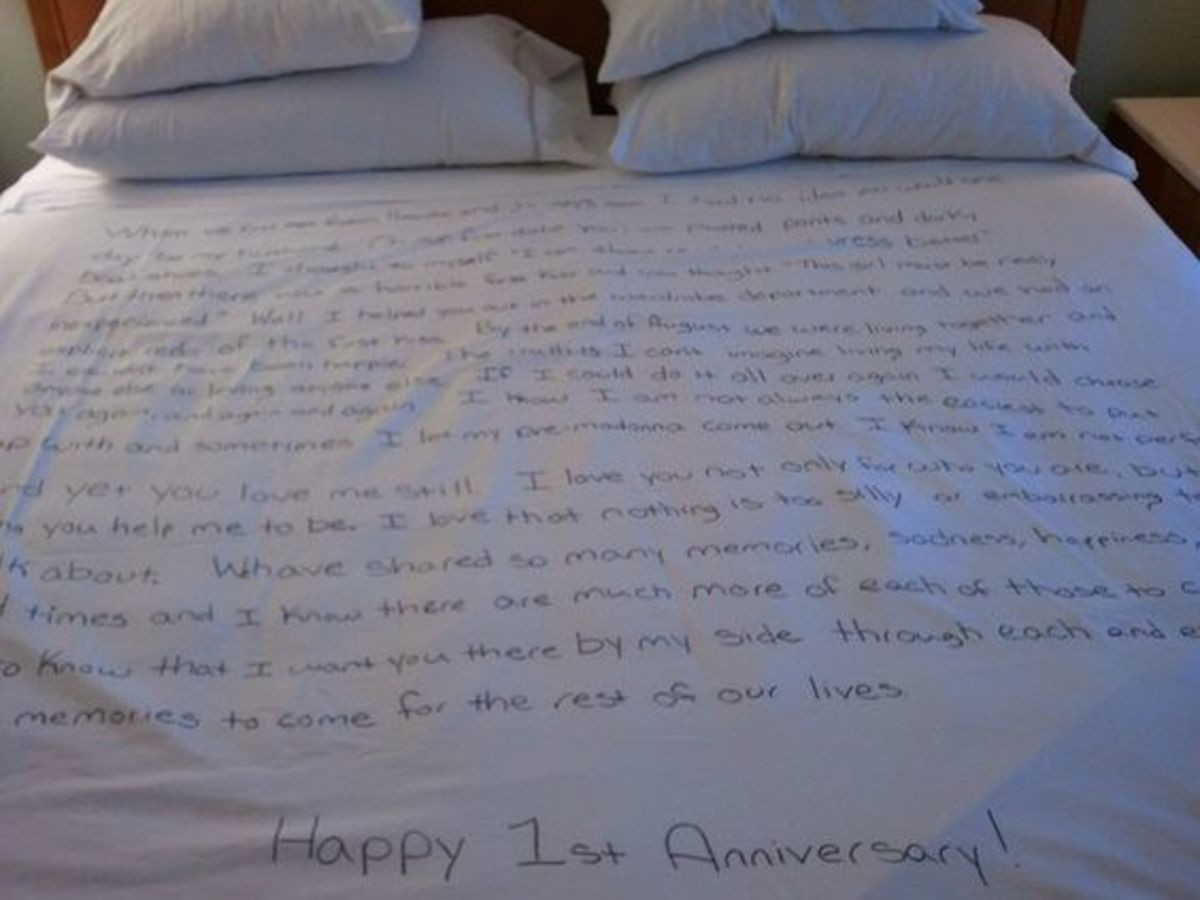 When we I had no idea you would one
day be my husband. pants and dorky
I thought to myself "I can dress better"
But then there was a horrible first kiss and you thought "This girl must be really
inexperienced" Well I helped you out in the wardrobe department and we had an
redo of the first kiss By the end of August we were living together and
I couldn't have been happier. The truth is I can't imagine living my life with
anyone else or loving anyone else. If I could do it all over again I would choose
you again and again and again. I know I am not always the easiest to put
up with and sometimes I let my pre-madonna come out. I know I am not perf
nd yet you love me still. I love you not only for who you are, but
you help me to be. I love that nothing is too silly or embarrassing to
lk about. Whave shared so many memories, sadness, happiness,
times and I know there are much more of each of those to c
o know that I want you there by my side through each and e
memories to come for the rest of our lives.
Happy 1st Anniversary!